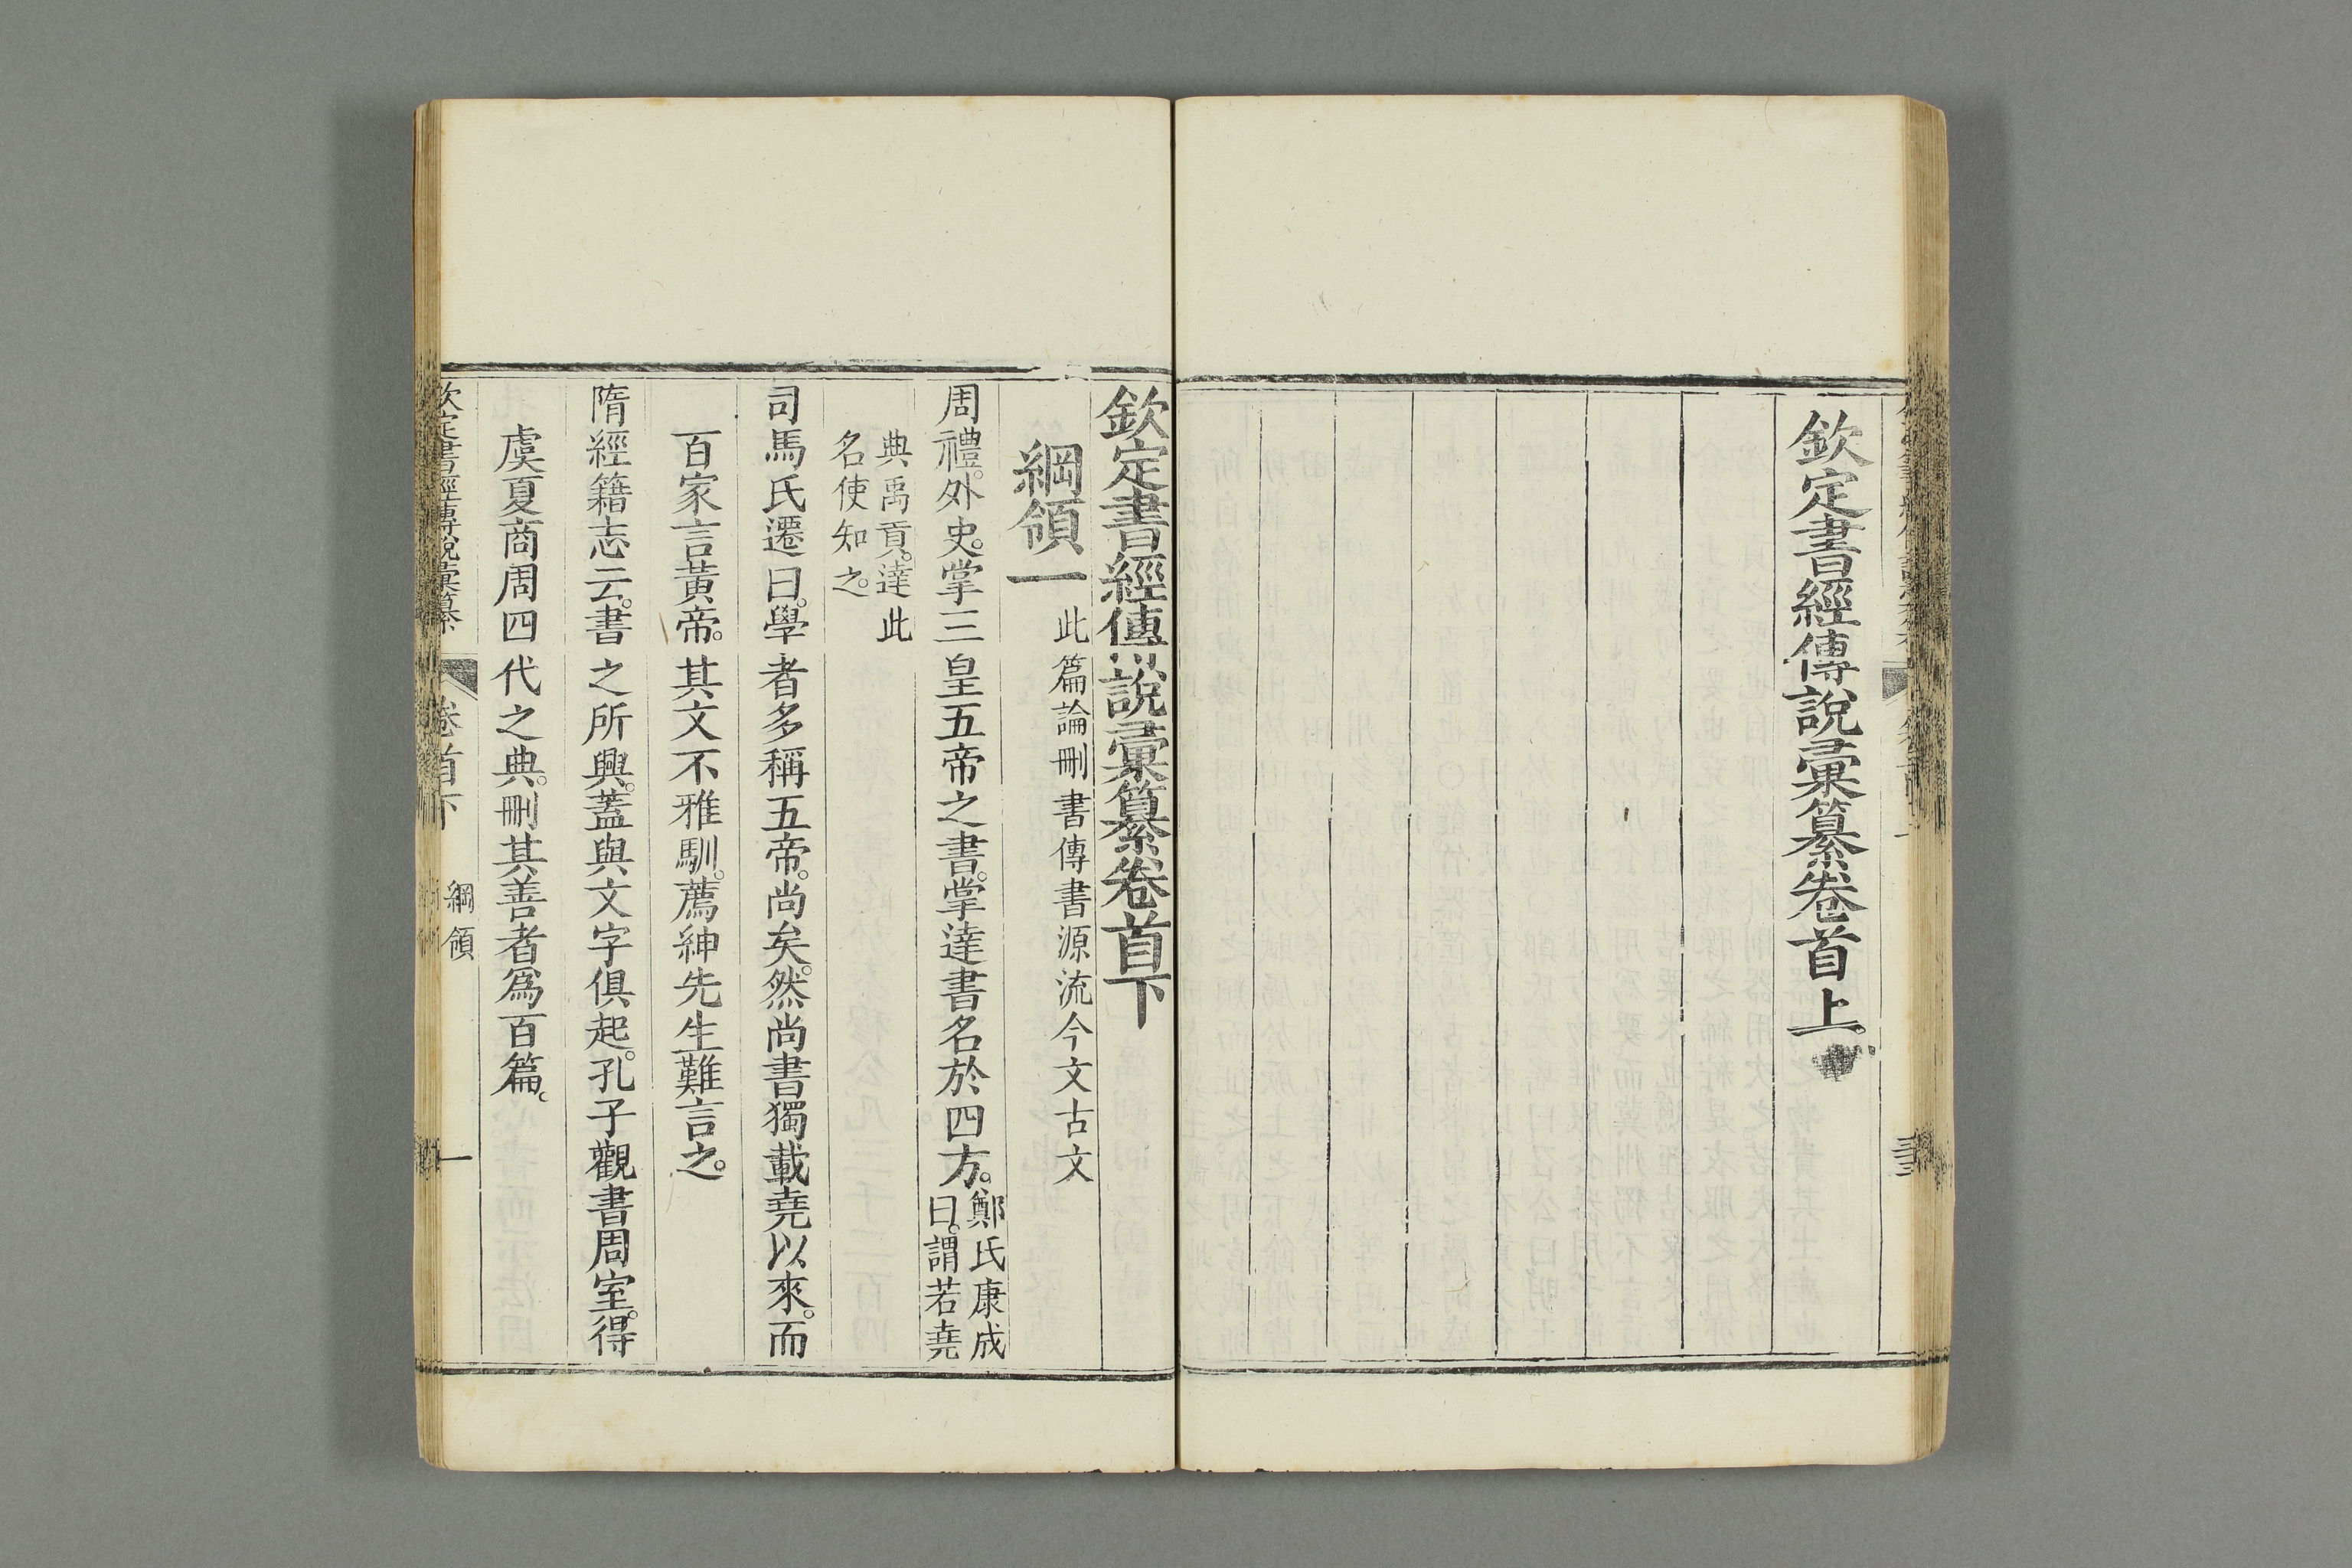 欽定書經傳說彙纂卷首上
欽定書經傳說彙纂卷首下
綱領一 此篇論刪書傳書源流今文古文
周禮。外史。掌三皇五帝之書。掌達書名於四方。鄭氏康成
曰。謂若堯
典禹貢。達此
名使知之。
司馬氏遷曰。學者多稱五帝。尚矣。然尚書獨載堯以來。而
百家言黃帝。其文不雅馴。薦紳先生難言之。
隋經籍志云。書之所興。蓋與文字俱起。孔子觀書周室。得
虞夏商周四代之典。刪其善者爲百篇。
欽定書經傳說彙纂 卷首下 綱領 一